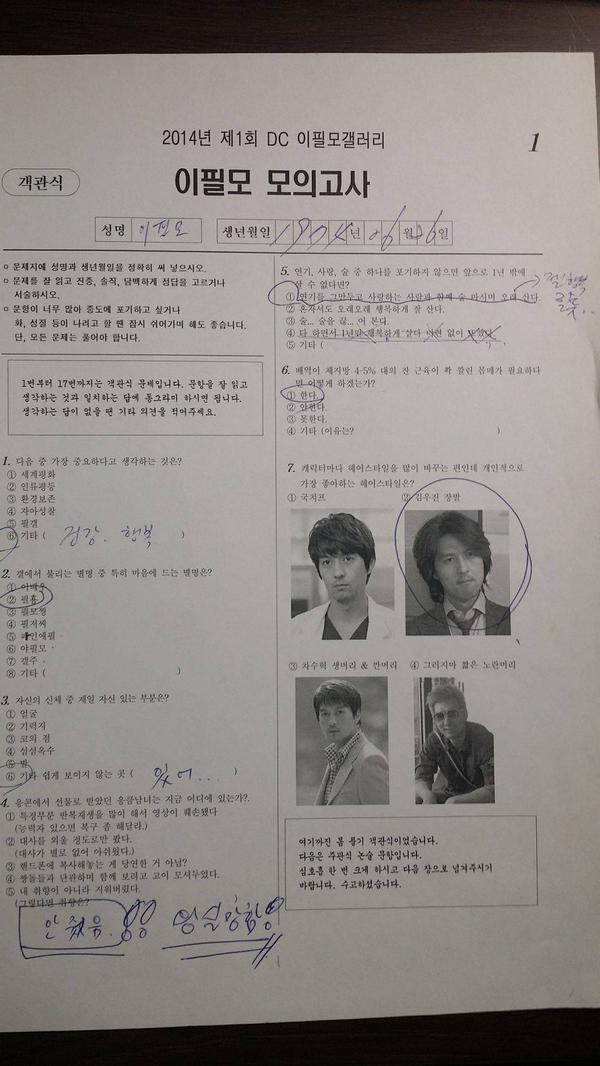 2014년 제1회 DC 이필모갤러리
1
객관식
이필모 모의고사
성명 이필모 생년월일 1974년 06월 26일
○ 문제지에 성명과 생년월일을 정확히 써 넣으시오.
○ 문제를 잘 읽고 진중, 솔직, 담백하게 정답을 고르거나
서술하시오.
○ 문항이 너무 많아 중도에 포기하고 싶거나
화, 성질 등이 나려고 할 땐 잠시 쉬어가며 해도 좋습니다.
단, 모든 문제는 풀어야 합니다.
1번부터 17번까지는 객관식 문제입니다. 문항을 잘 읽고
생각하는 것과 일치하는 답에 동그라미 하시면 됩니다.
생각하는 답이 없을 땐 기타 의견을 적어주세요.
1. 다음 중 가장 중요하다고 생각하는 것은?
① 세계평화
② 인류평등
③ 환경보존
④ 자아성찰
⑤ 필갤
⑥ 기타 ( 건강. 행복 )
2. 갤에서 불리는 별명 중 특히 마음에 드는 별명은?
① 이배우
② 필흡
③ 필모형
④ 필저씨
⑤ 파인애필
⑥ 야필모
⑦ 갤주
⑧ 기타 ( )
3. 자신의 신체 중 제일 자신 있는 부분은?
① 얼굴
② 기럭지
③ 코의 점
④ 섬섬옥수
⑤ 발
⑥ 기타 쉽게 보이지 않는 곳 ( 있어... )
4. 응콘에서 선물로 받았던 응큼남녀는 지금 어디에 있는가?
① 특정부분 반복재생을 많이 해서 영상이 훼손됐다
(능력자 있으면 복구 좀 해달라.)
② 대사를 외울 정도로만 봤다.
(대사가 별로 없어 아쉬웠다.)
③ 핸드폰에 복사해놓는 게 당연한 거 아님?
④ 짱돌들과 단관하며 함께 보려고 고이 모셔두었다.
⑤ 내 취향이 아니라 지워버렸다.
(그렇다면 취향은?
안 줬음
5. 연기, 사랑, 술 중 하나를 포기하지 않으면 앞으로 1년 밖에
살 수 없다면?
① 연기를 그만두고 사랑하는 사람과 함께 술 마시며 오래 산다.
② 혼자서도 오래오래 행복하게 잘 산다.
③ 술... 술을 끊...어 본다.
④ 다 하면서 1년만 행복하게 살다 미련 없이
⑤ 기타 ( )
6. 배역이 체지방 4-5% 대의 잔 근육이 쫙 깔린 몸매가 필요하다
면 어떻게 하겠는가?
① 한다.
② 안한다.
③ 못한다.
④ 기타 (이유는? )
7. 캐릭터마다 헤어스타일을 많이 바꾸는 편인데 개인적으로
가장 좋아하는 헤어스타일은?
① 국치프 ② 김우진 장발
③ 차수혁 생머리 & 칸머리 ④ 그러지마 짧은 노란머리
여기까진 몸 풀기 객관식이었습니다.
다음은 주관식 논술 문항입니다.
심호흡 한 번 크게 하시고 다음 장으로 넘겨주시기
바랍니다. 수고하셨습니다.